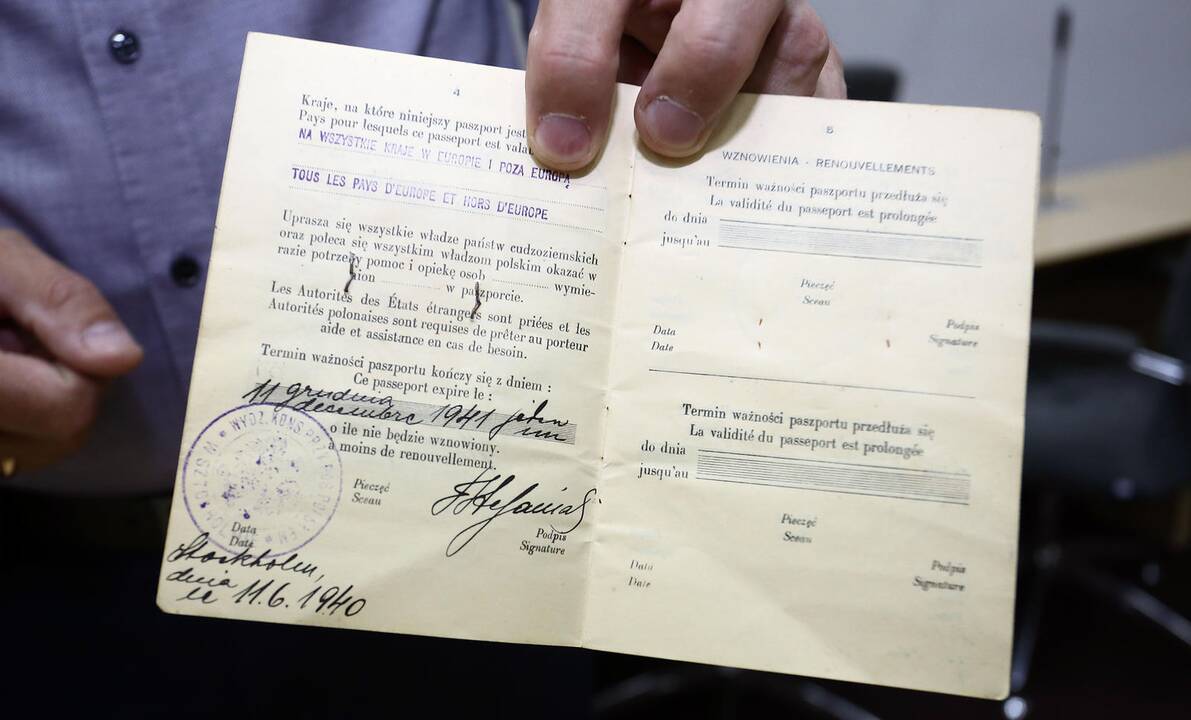 4
Kraje, na które niniejszy paszport jest
Pays pour lesquels ce passeport est vala
NA WSZYSTKIE KRAJE W EUROPIE I POZA EUROPĄ
TOUS LES PAYS D'EUROPE ET HORS D'EUROPE
Uprasza się wszystkie władze państw cudzoziemskich
oraz poleca się wszystkim władzom polskim okazać w
razie potrzeby pomoc i opiekę osob wymie-
nion w paszporcie.
Les Autorités des États étrangers sont priées et les
Autorités polonaises sont requises de prêter au porteur
aide et assistance en cas de besoin.
Termin ważności paszportu kończy się z dniem :
Ce passeport expire le :
11 grudnia
decembre 1941 jeden
un
o ile nie będzie wznowiony.
a moins de renouvellement.
WYDZ. KONS PRZY
Pieczęć
Sceau
Podpis
Signature
Data
Date
Stockholm,
dnia
le 11.6.1940
5
WZNOWIENIA - RENOUVELLEMENTS
Termin ważności paszportu przedłuża się
La validité du passeport est prolongée
do dnia
jusqu'au
Pieczęć
Sceau
Data
Date
Podpis
Signature
Termin ważności paszportu przedłuża się
La validité du passeport est prolongée
do dnia
jusqu'au
Pieczęć
Sceau
Data
Date
Podpis
Signature